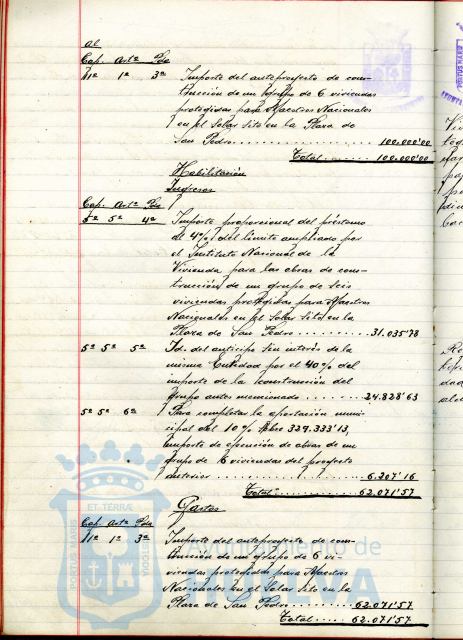 al
Cap. Artº Pda
11º 1º 3ª Importe del anteproyecto de cons-
trucción de un grupo de 6 viviendas
protegidas para Maestros Nacionales
en el Solar sito en la Plaza de
San Pedro 100.000'00
Total 100.000'00
Habilitación
Ingresos
Cap. Artº Pda
5º 5º 4ª Importe proporcional del préstamo
al 4% del límite ampliado por
el Instituto Nacional de la
Vivienda para las obras de cons-
trucción de un grupo de seis
viviendas protegidas para Maestros
Nacionales en el Solar sito en la
Plaza de San Pedro 31.035'78
5º 5º 5ª Id. del anticipo sin interés de la
misma Entidad por el 40% del
importe de la construcción del
grupo antes mencionado 24.828'63
5º 5º 6ª Para completar la aportación muni-
cipal del 10% sobre 329.333'13,
importe de ejecución de obras de un
grupo de 6 viviendas del proyecto
anterior 6.207'16
Total 62.071'57
Gastos
Cap. Artº Pda
11º 1º 3ª Importe del anteproyecto de cons-
trucción de un grupo de 6 vi-
viendas protegidas para Maestros
Nacionales en el Solar sito en la
Plaza de San Pedro 62.071'57
Total 62.071'57
ET TERRÆ
Ayuntamiento de